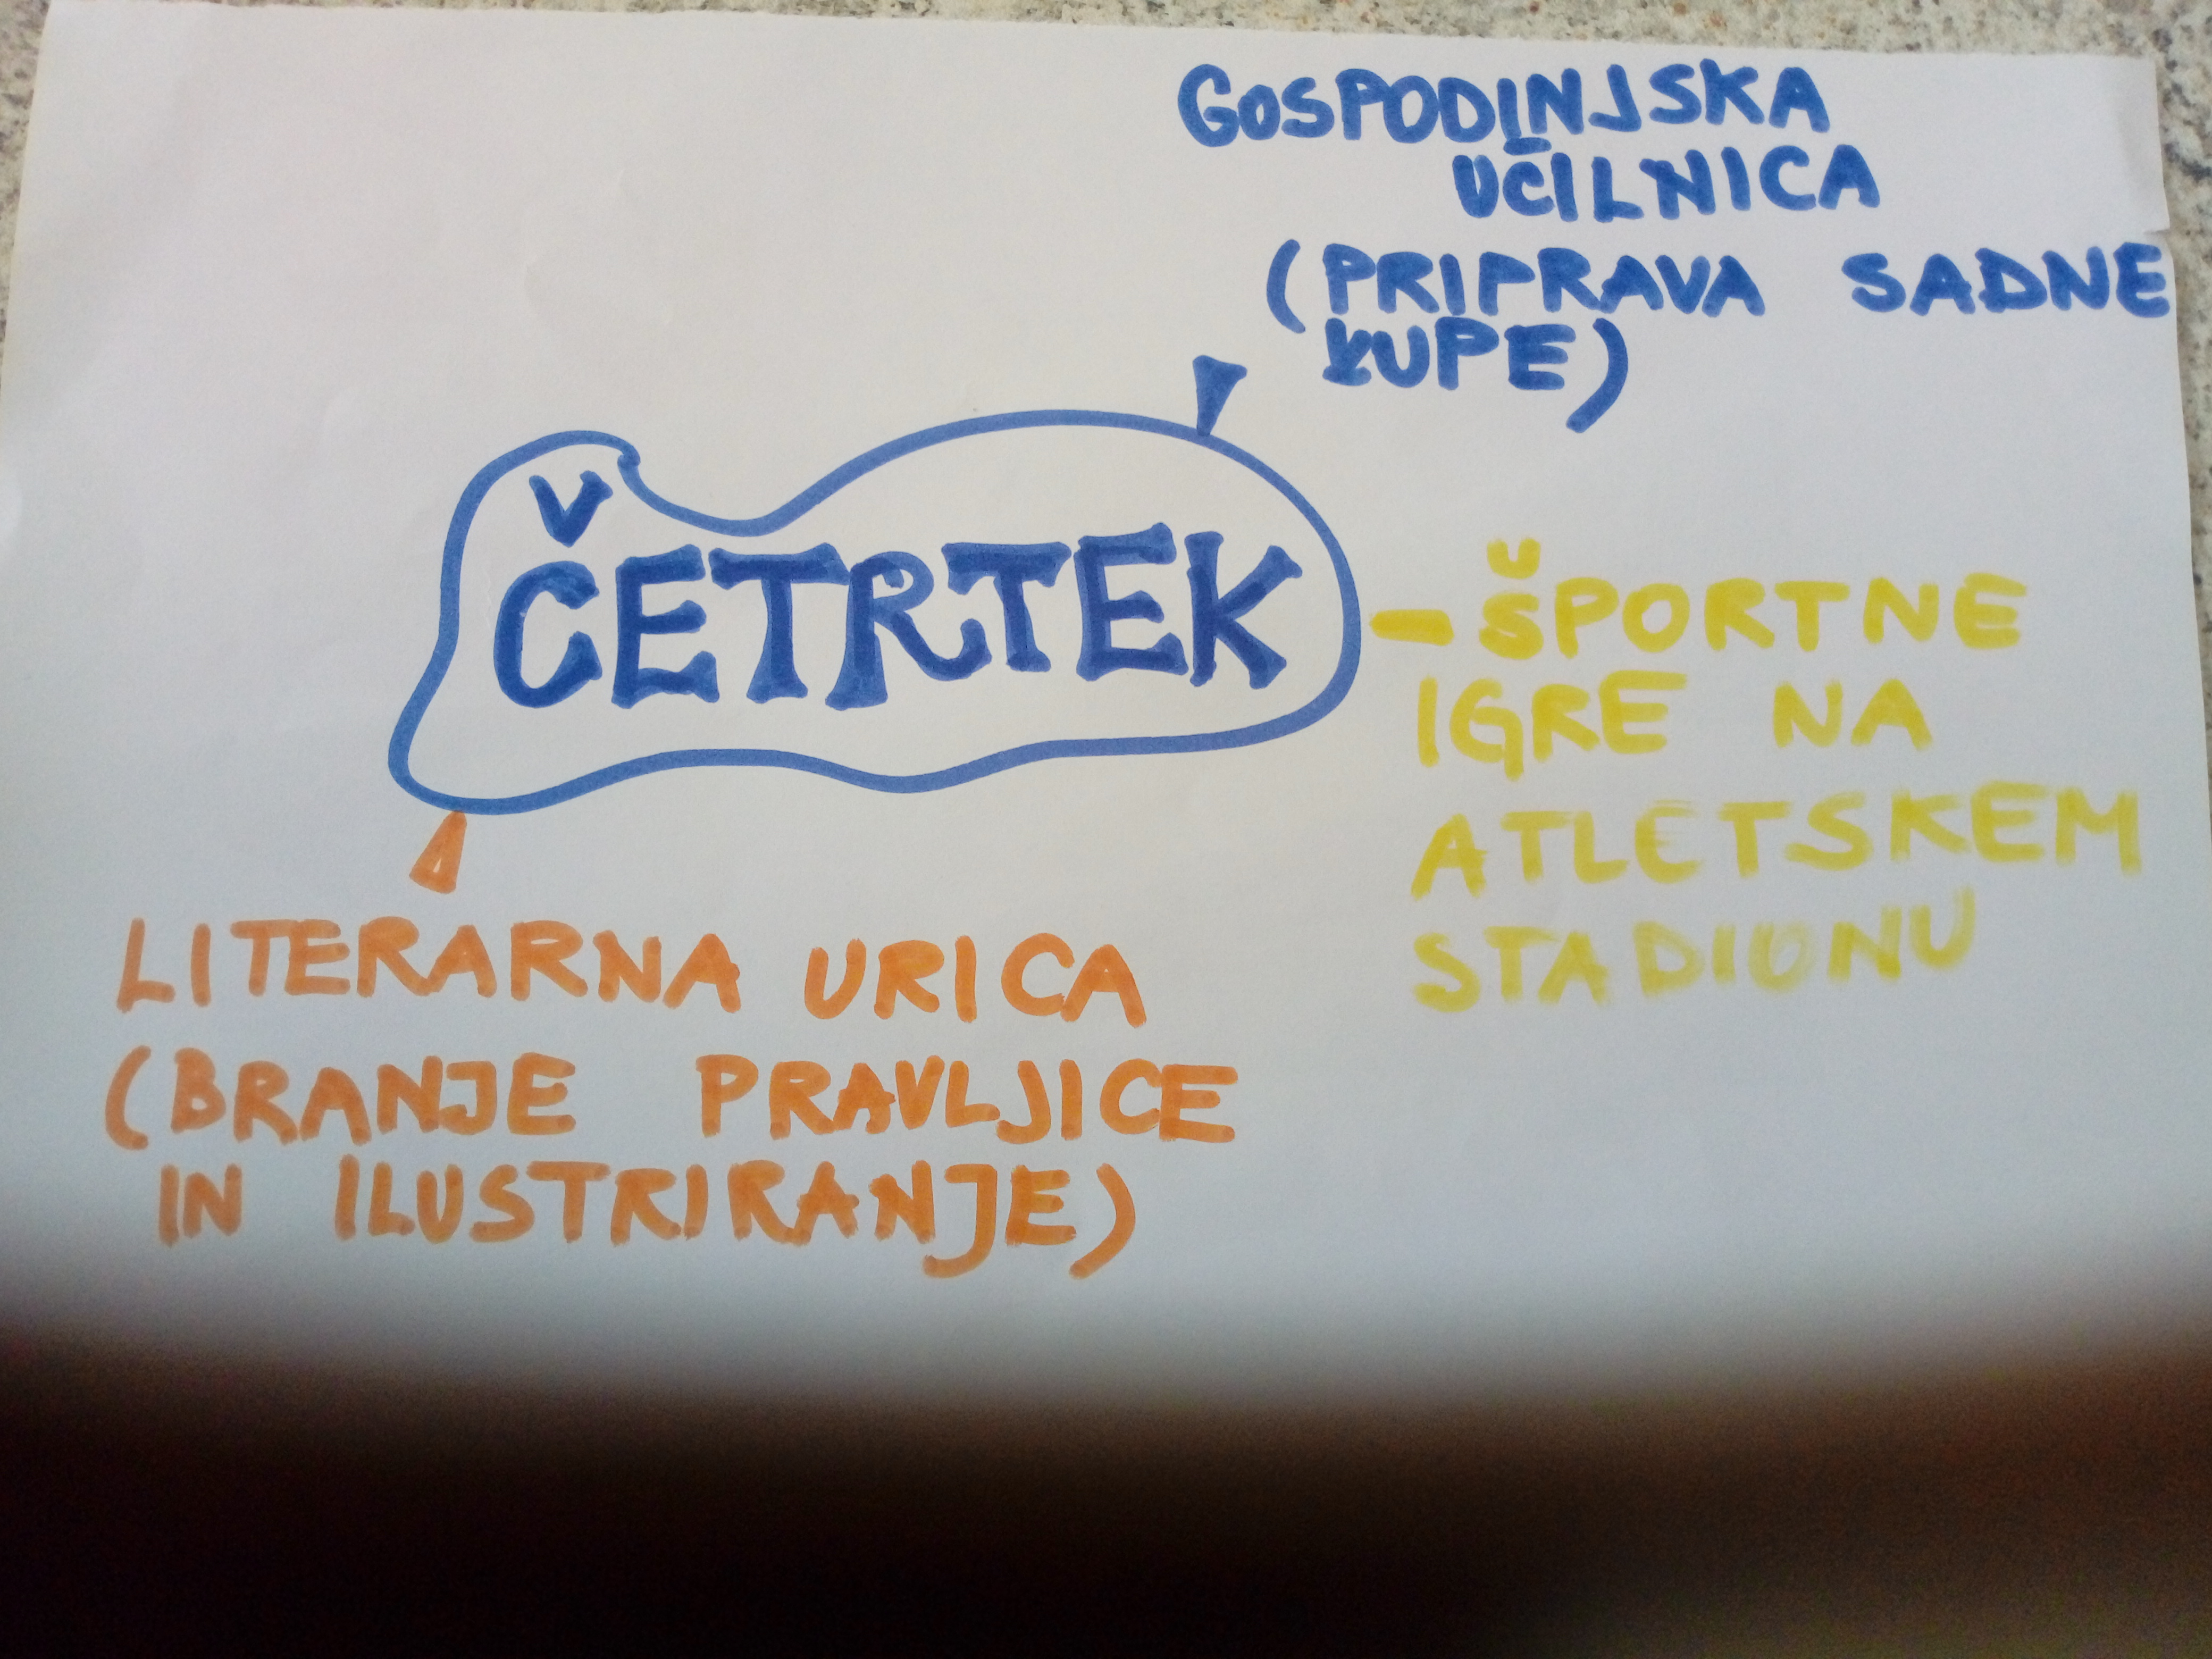 GOSPODINJSKA
UČILNICA
(PRIPRAVA SADNE
KUPE)
ČETRTEK
- ŠPORTNE
IGRE NA
ATLETSKEM
STADIONU
LITERARNA URICA
(BRANJE PRAVLJICE
IN ILUSTRIRANJE)